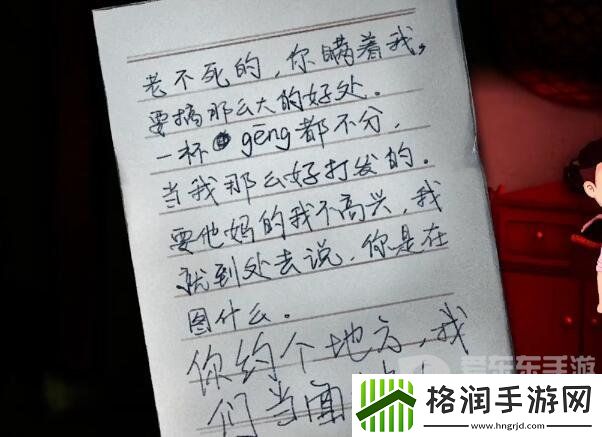 老不死的，你瞒着我，
要搞那么大的好处。
一杯 gēng 都不分，
当我那么好打发的。
要他妈的我不高兴，我
就到处去说，你是在
图什么。
你约个地方，我
们当面
爱东东手游
格润手游网
www.hngrjd.com